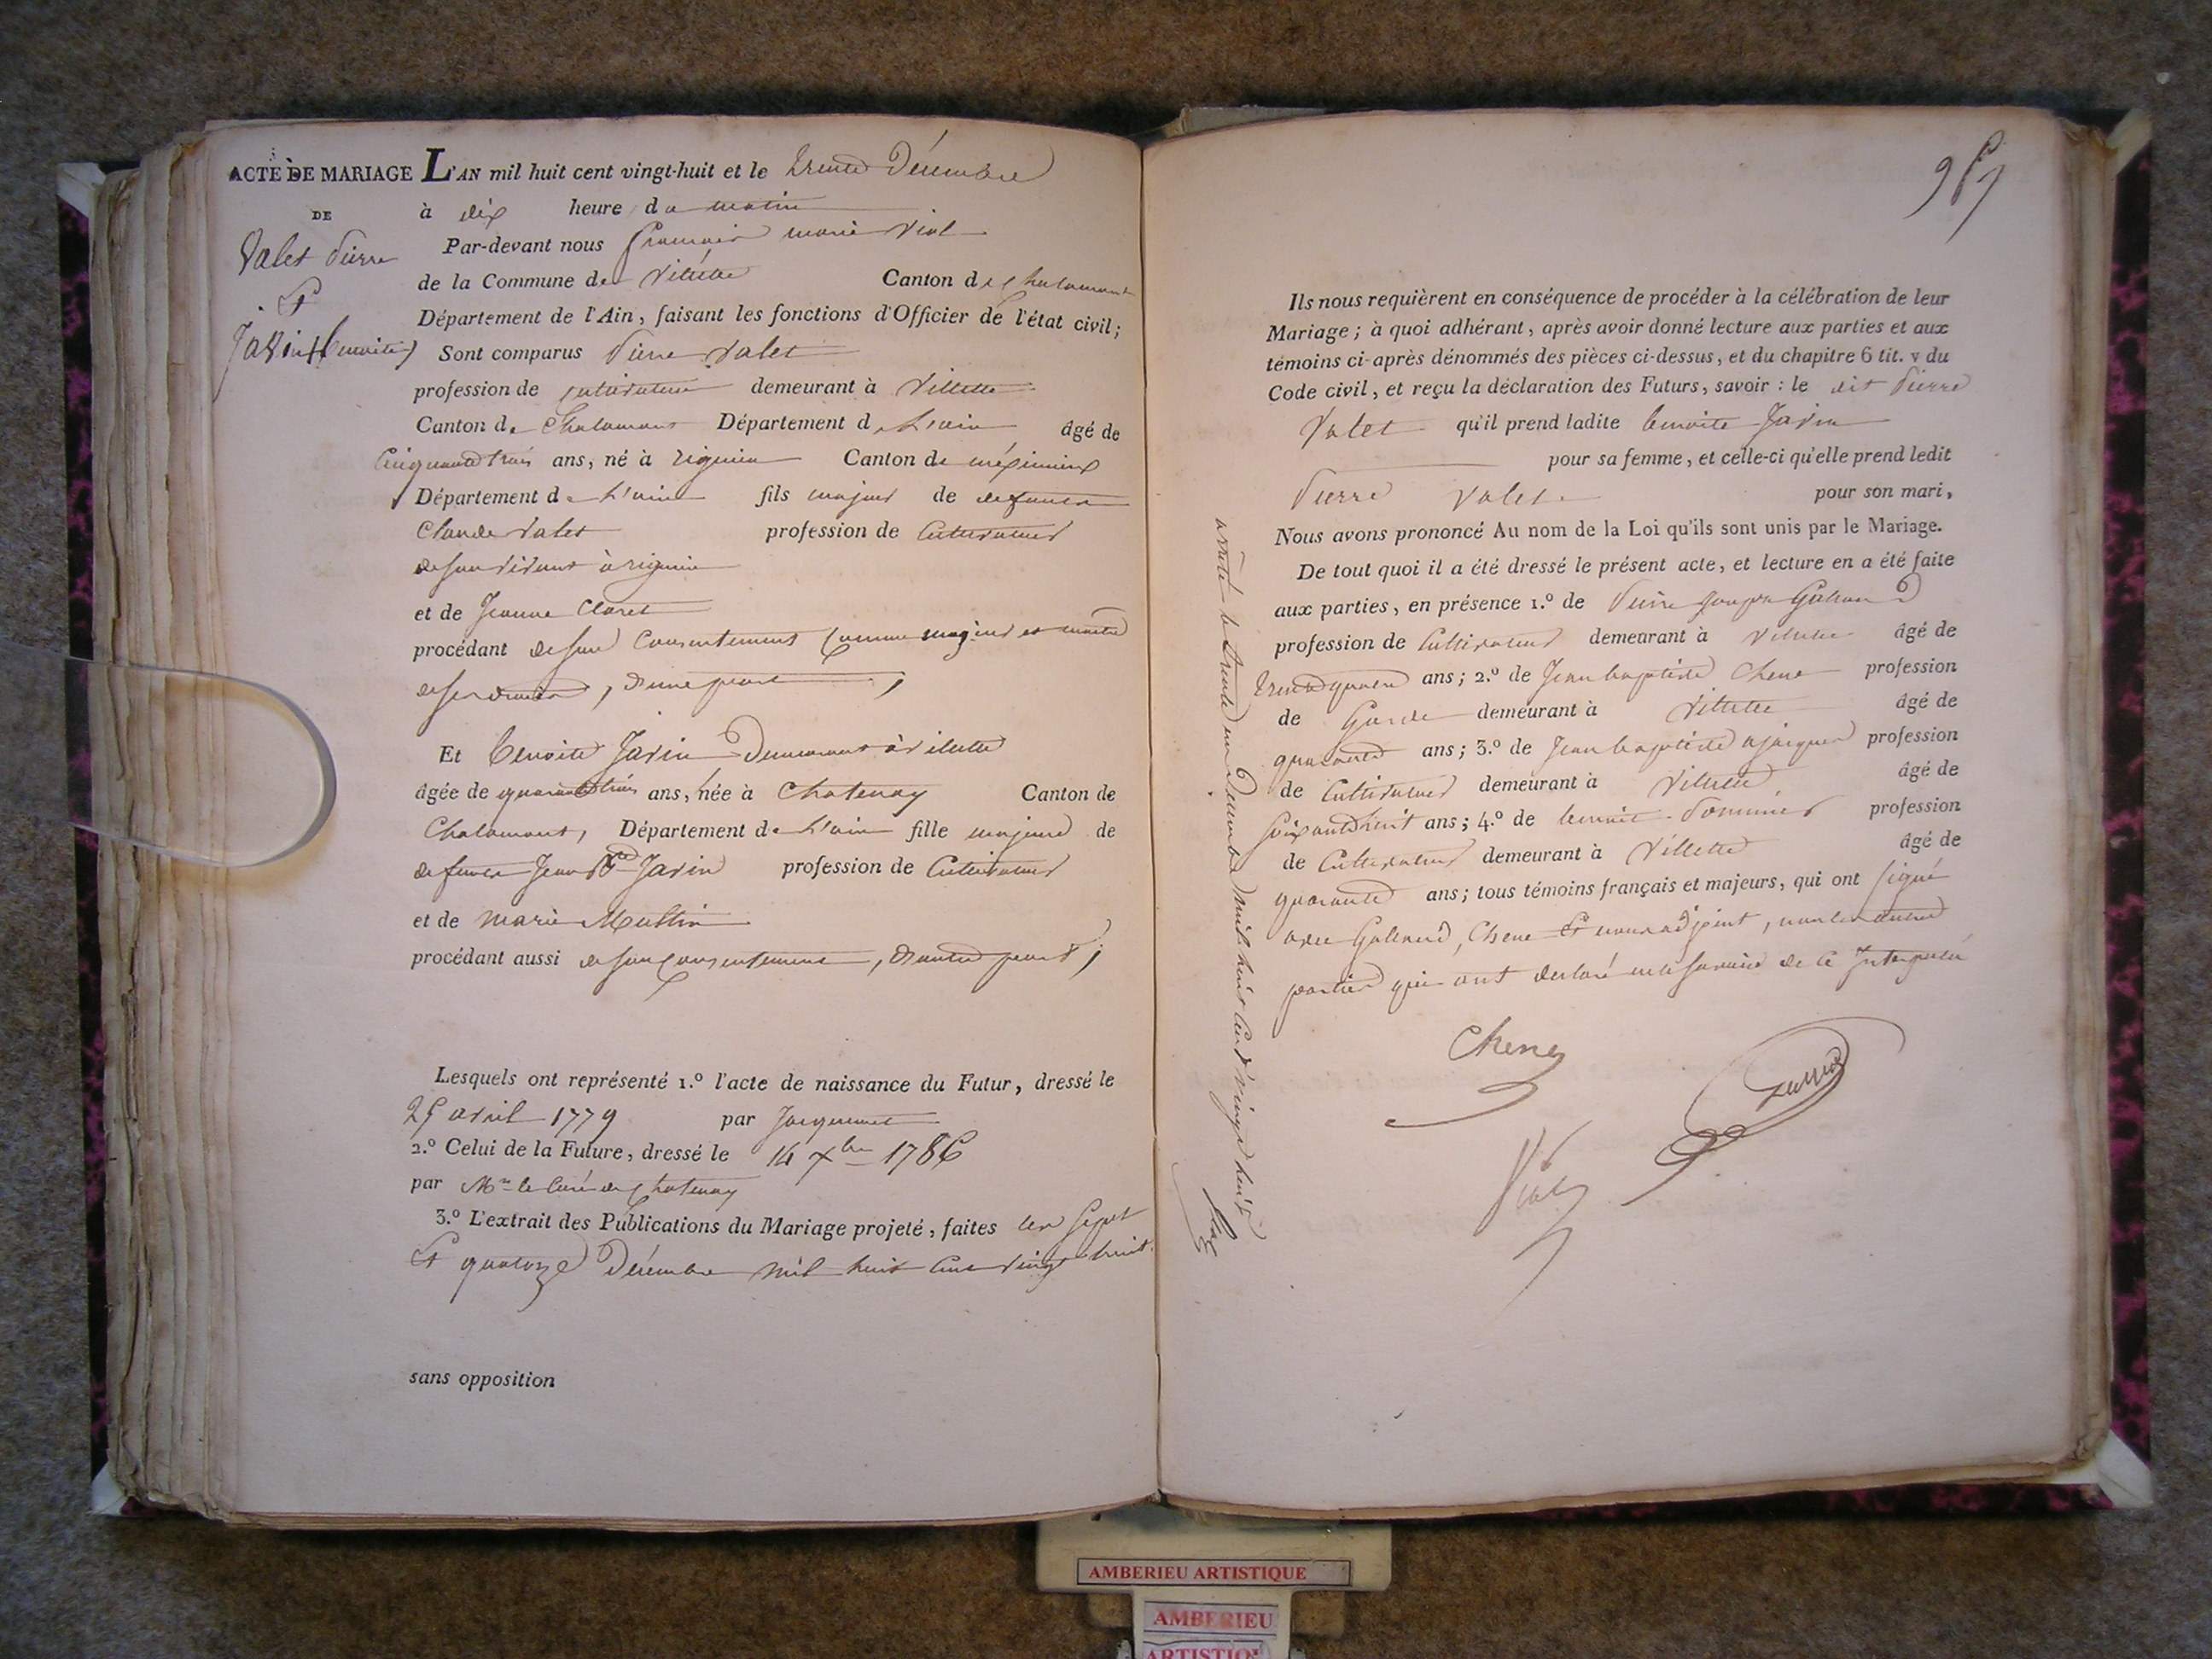 ACTE DE MARIAGE L'AN mil huit cent vingt-huit et le trente Décembre
DE
Valet Pierre
Et
Javin benoite
à dix heure du matin
Par-devant nous François marie Vial
de la Commune de Villette Canton de Chalamont
Département de l'Ain, faisant les fonctions d'Officier de l'état civil;
Sont comparus Pierre Valet
profession de cultivateur demeurant à Villette
Canton de Chalamont Département de L'ain âgé de
Cinquante trois ans, né à rignieu Canton de meximieux
Département de L'ain fils majeur de defunct
Claude Valet profession de Cultivateur
de son vivant à rignieu
et de Jeanne Claret
procédant de son Consentement Comme majeur et maitre
de ses droits, d'une part,
Et Benoite Javin Demeurant à vilette
âgée de quarante trois ans, née à Chatenay Canton de
Chalamont, Département de L'ain fille majeure de
defunct Jean Bte Javin profession de Cultivateur
et de marie
procédant aussi de son Consentement, d'autre part;
Lesquels ont représenté 1.º l'acte de naissance du Futur, dressé le
25 avril 1779 par Jacquemet
2.º Celui de la Future, dressé le 14 Xbre 1786
par Mr le Curé de Chatenay
3.º L'extrait des Publications du Mariage projeté, faites les sept
Et quatorze Décembre mil huit cent vingt huit
sans opposition
Ils nous requièrent en conséquence de procéder à la célébration de leur
Mariage; à quoi adhérant, après avoir donné lecture aux parties et aux
témoins ci-après dénommés des pièces ci-dessus, et du chapitre 6 tit. v du
Code civil, et reçu la déclaration des Futurs, savoir : le dit Pierre
Valet qu'il prend ladite benoite Javin
pour sa femme, et celle-ci qu'elle prend ledit
Pierre Valet pour son mari,
Nous avons prononcé Au nom de la Loi qu'ils sont unis par le Mariage.
De tout quoi il a été dressé le présent acte, et lecture en a été faite
aux parties, en présence 1.º de Pierre joseph
profession de Cultivateur demeurant à Villette âgé de
trente quatre ans; 2.º de Jean baptiste Chene profession
de Garde demeurant à Villette âgé de
quarante ans; 3.º de Jean baptiste profession
de Cultivateur demeurant à Villette âgé de
soixante huit ans; 4.º de benoit profession
de Cultivateur demeurant à Villette âgé de
quarante ans; tous témoins français et majeurs, qui ont signé
avec Chene Et nous adjoint, non les autres
parties qui ont declaré ne le savoir de ce Interpelé
Chene
Vial
arreté le trente un Decembre mil huit Cent vingt huit
Vial
AMBERIEU ARTISTIQUE
AMBERIEU
ARTISTIQ